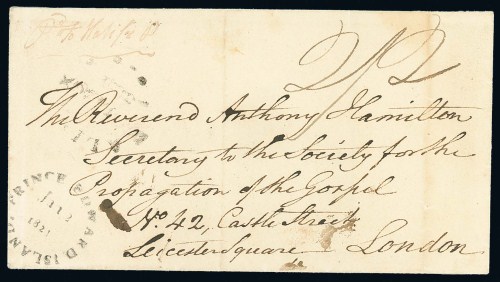 Pd to Halifax
2/2
The Reverend Anthony Hamilton
Secretary to the Society for the
Propagation of the Gospel
No. 42, Castle Street
Leicester Square London
PRINCE EDWARD ISLAND